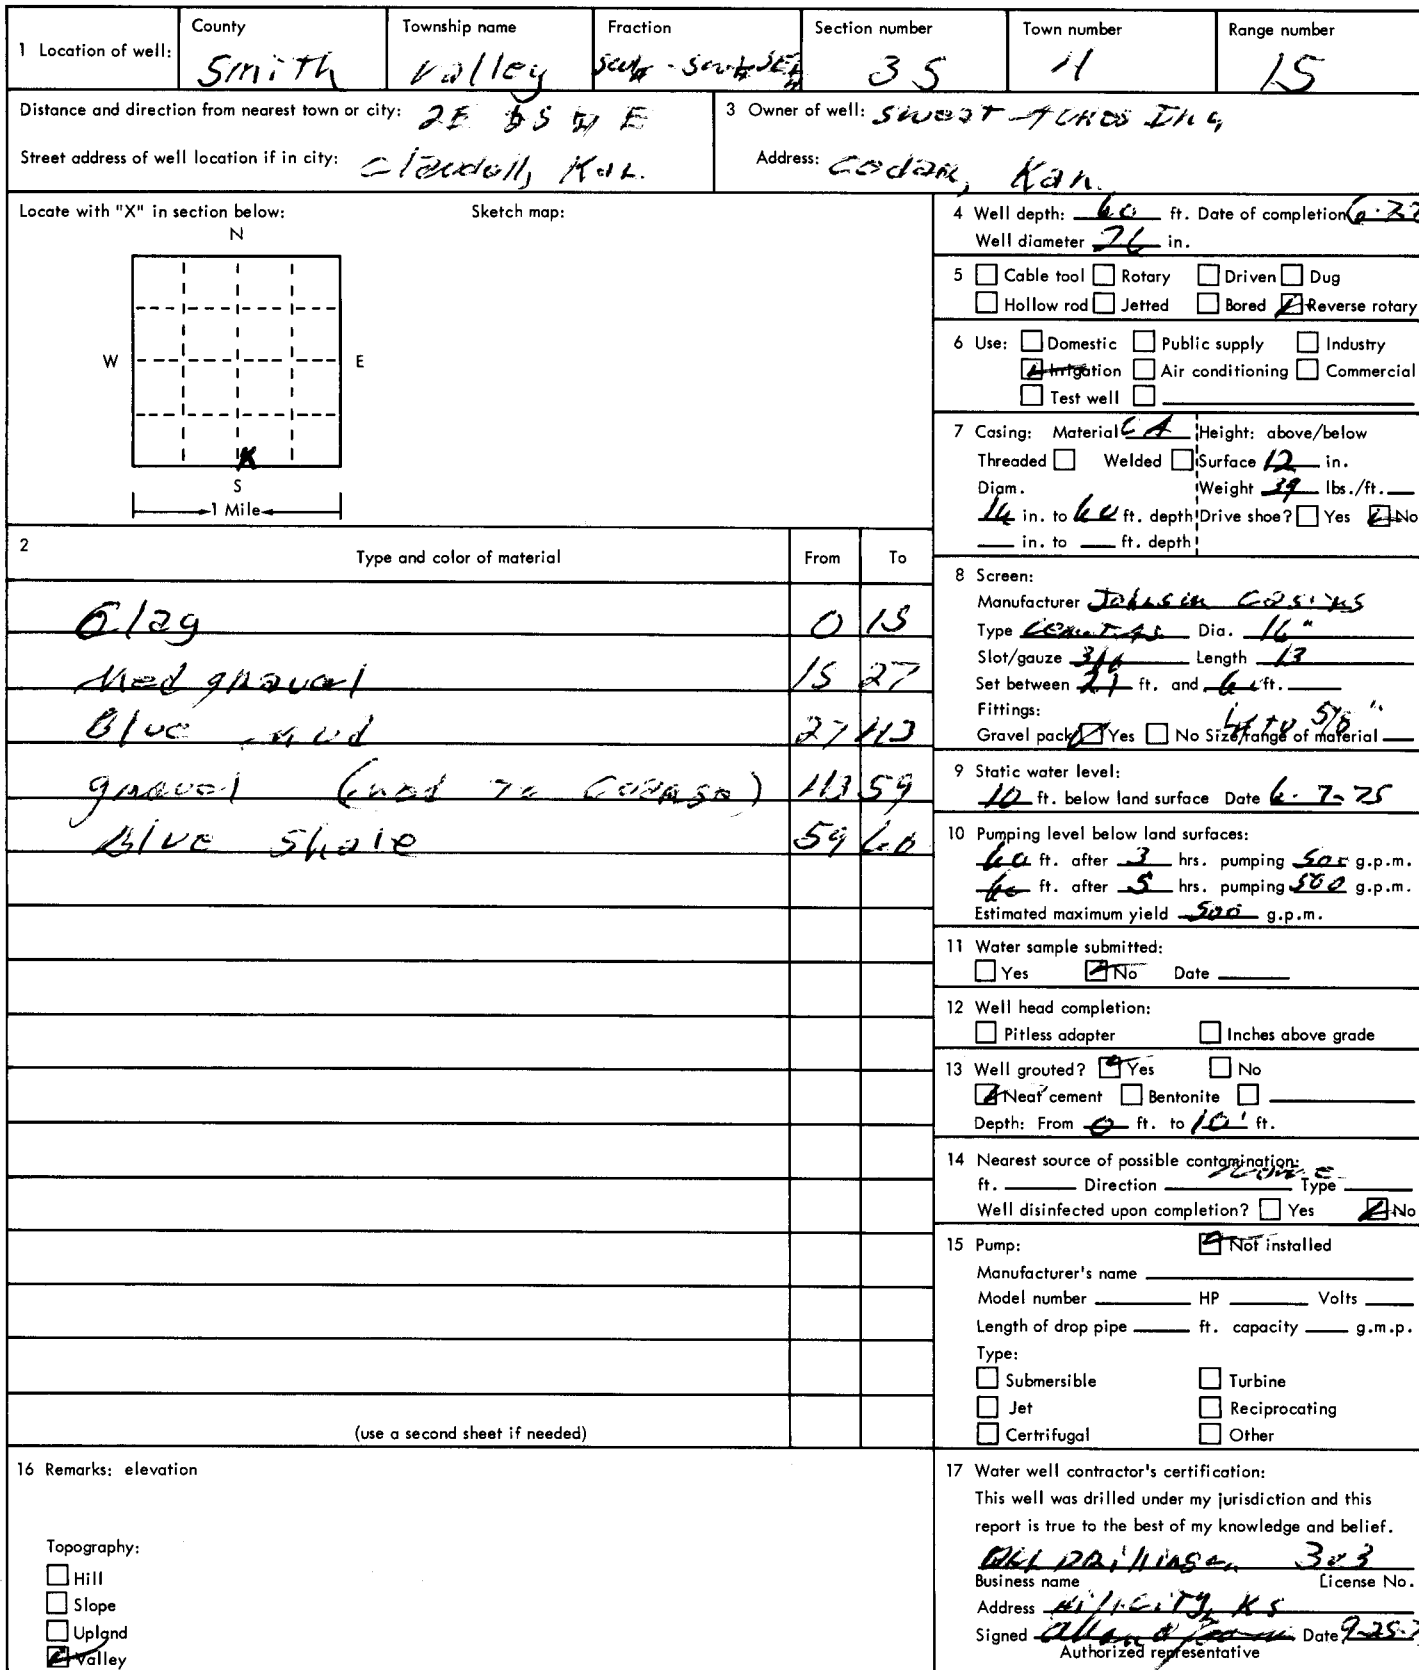 1 Location of well: County Township name Fraction Section number Town number Range number
Smith Valley 35 11 15
Distance and direction from nearest town or city: 2E 5S E
Street address of well location if in city: Kan.
3 Owner of well: Sweat Acres Inc
Address: Codar, Kan.
Locate with "X" in section below: Sketch map:
N
W E
X
S
1 Mile
2 Type and color of material From To
Clay 0 15
Med graval 15 27
Blue mud 27 43
graval (med to Coarse) 43 59
Blue Shale 59 60
(use a second sheet if needed)
16 Remarks: elevation
Topography:
Hill
Slope
Upland
Valley
4 Well depth: 60 ft. Date of completion
Well diameter 26 in.
5 Cable tool Rotary Driven Dug
Hollow rod Jetted Bored Reverse rotary
6 Use: Domestic Public supply Industry
Irrigation Air conditioning Commercial
Test well
7 Casing: Material CA Height: above/below
Threaded Welded Surface 12 in.
Diam. Weight 39 lbs./ft.
16 in. to 60 ft. depth Drive shoe? Yes No
in. to ft. depth
8 Screen:
Manufacturer Johnson Casings
Type Dia. 16"
Slot/gauze 3/16 Length 13
Set between 21 ft. and 60 ft.
Fittings: 1/4 to 5/8"
Gravel pack Yes No Size/range of material
9 Static water level:
10 ft. below land surface Date 6-7-75
10 Pumping level below land surfaces:
60 ft. after 3 hrs. pumping 500 g.p.m.
60 ft. after 5 hrs. pumping 500 g.p.m.
Estimated maximum yield 500 g.p.m.
11 Water sample submitted:
Yes No Date
12 Well head completion:
Pitless adapter Inches above grade
13 Well grouted? Yes No
Neat cement Bentonite
Depth: From 0 ft. to 10' ft.
14 Nearest source of possible contamination:
ft. Direction None Type
Well disinfected upon completion? Yes No
15 Pump: Not installed
Manufacturer's name
Model number HP Volts
Length of drop pipe ft. capacity g.m.p.
Type:
Submersible Turbine
Jet Reciprocating
Certrifugal Other
17 Water well contractor's certification:
This well was drilled under my jurisdiction and this
report is true to the best of my knowledge and belief.
Drilling 303
Business name License No.
Address Hill City, KS
Signed Date 9-25-7
Authorized representative